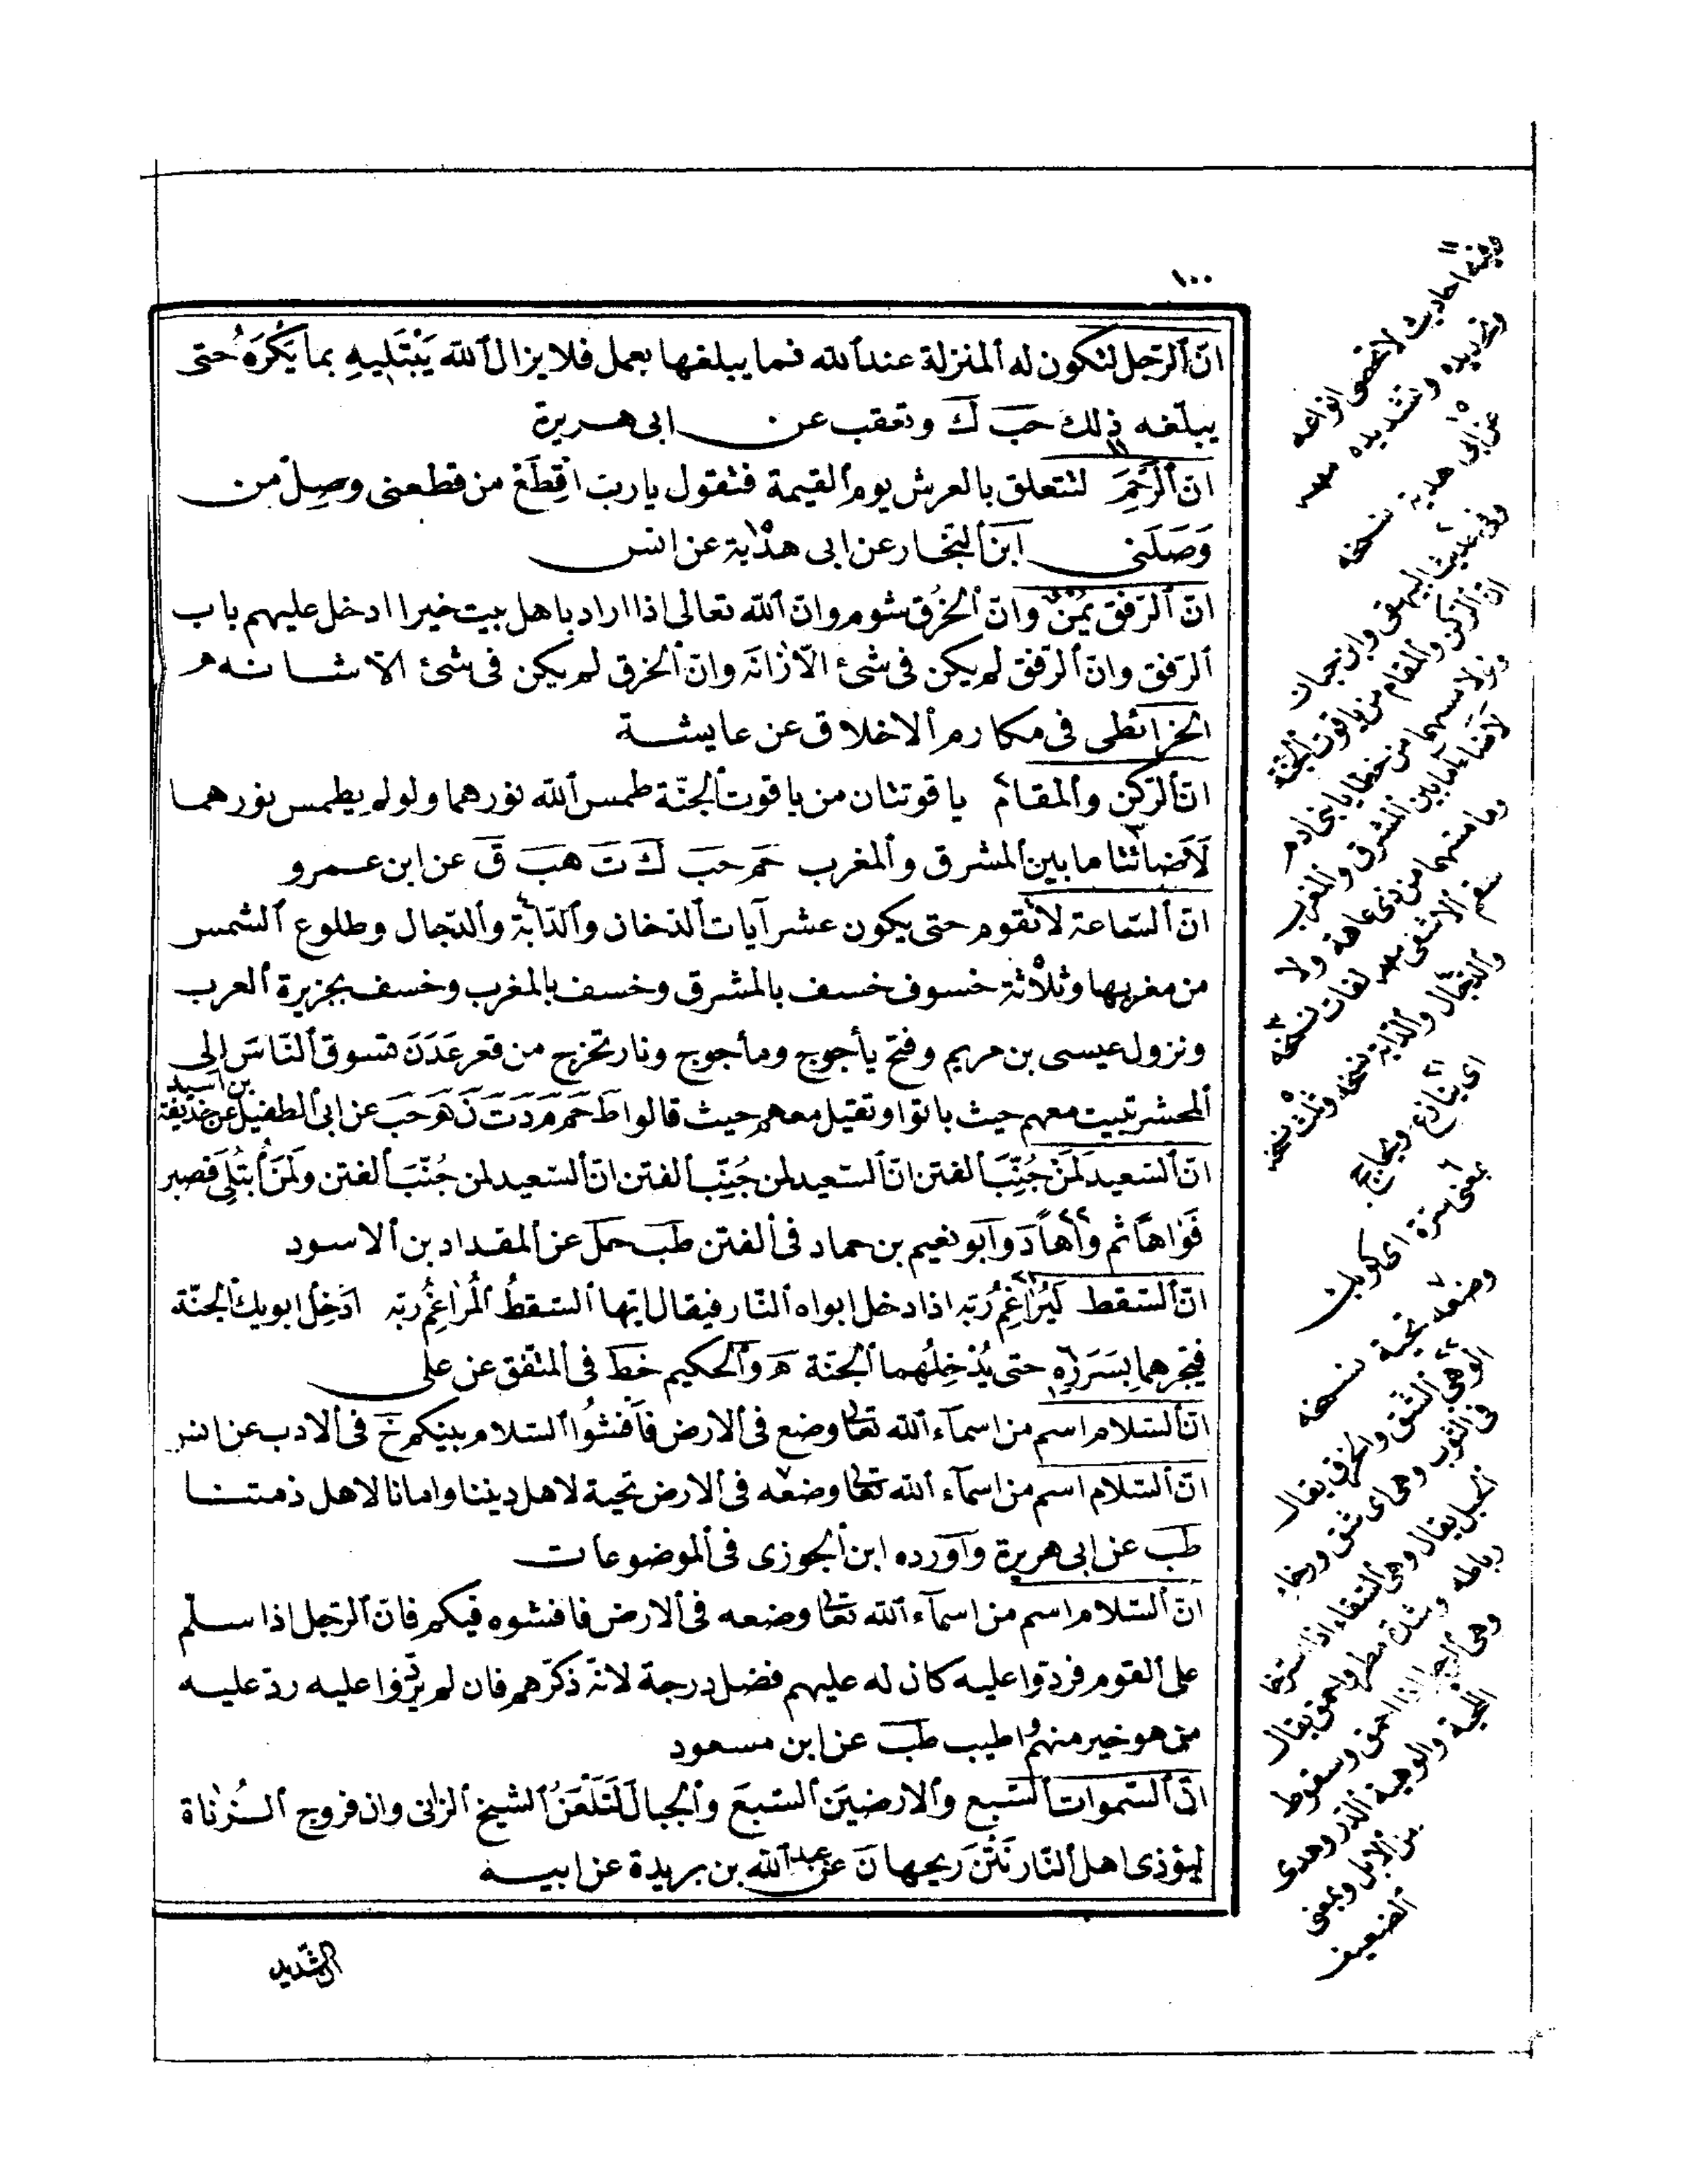 ١٠٠
انّ الرّجل لتكون له المنزلة عند الله فما يبلغها بعمل فلا يزال الله يَبْتَلِيهِ بما يَكْرَهُ حتى
يبلّغه ذلك حَبَ كَ وتعقب عن ابى هريرة
انّ الرَّحِمَ لتتعلق بالعرش يوم القيمة فتقول يا ربّ اقْطَعْ من قطعنى وصِلْ من
وَصَلَنى ابن النجّار عن ابى هدْبة عن انس
انّ الرّفق يُمْنٌ وانّ الخُرْق شوم وانّ الله تعالى اذا اراد باهل بيت خيرا ادخل عليهم باب
الرّفق وانّ الرّفق لم يكن فى شئ الّا زانَه وانّ الخرق لم يكن فى شئ الّا شانه
الخرائطى فى مكارم الاخلاق عن عايشة
انّ الركن والمقام ياقوتتان من ياقوت الجنّة طمس الله نورهما ولو لم يطمس نورهما
لَاَضائتا ما بين المشرق والمغرب حَم حَبَ كَ تَ هبَ قَ عن ابن عمرو
انّ السّاعة لا تقوم حتى يكون عشر آيات الدّخان والدّابّة والدّجال وطلوع الشمس
من مغربها وثلاثة خسوف خسف بالمشرق وخسف بالمغرب وخسف بجزيرة العرب
ونزول عيسى بن مريم وفتح يأجوج ومأجوج ونار تخرج من قعر عَدَنَ تسوق النّاسَ الى
المحشر تبيت معهم حيث باتوا وتقيل معهم حيث قالوا طَ حَم مَ دَ تَ نَ هَ حَب عن ابى الطفيل عن حذيفة بن اسيد
انّ السّعيد لَمَنْ جُنِّبَ الفتن انّ السّعيد لمن جُنِّبَ الفتن انّ السّعيد لمن جُنّبَ الفتن ولَمَنْ اُبتُلِىَ فصبر
فَوَاهًا ثم وَاهًا دَ وابو نعيم بن حماد فى الفتن طَب حل عن المقداد بن الاسود
انّ السّقط لَيُرَاغِمُ رَبّه اذا دخل ابواه النّار فيقال ايّها السّقطُ المُرَاغِمُ ربّه ادْخِلْ ابويك الجنّة
فيجرهما بِسَرَرِهِ حتى يُدْخِلُهما الجنّة هَ والحكيم خَط فى المتّفق عن على
انّ السّلام اسم من اسمآء الله تعالى وضع فى الارض فاَفْشُوا السّلام بينكم خَ فى الادب عن انس
انّ السّلام اسم من اسمآء الله تعالى وضعه فى الارض تحية لاهل ديننا وامانا لاهل ذمتنا
طَب عن ابى هريرة وآورده ابن الجوزى فى الموضوعات
انّ السّلام اسم من اسمآء الله تعالى وضعه فى الارض فافشوه فيكم فانّ الرّجل اذا سلّم
على القوم فردّوا عليه كان له عليهم فضل درجة لانّه ذكّرهم فان لم يردّوا عليه ردّ عليه
من هو خير منهم واطيب طَب عن ابن مسعود
انّ السّموات السّبع والارضين السّبعَ والجبالَ لَتَلْعَنُ الشيخ الزانى وان فروج الزُناة
ليؤذى اهل النّار نَتْنُ ريحها نَ عن عبد الله بن بريدة عن ابيه
الشّديد
وفيه احاديث لا تحصى انواعه
وتهديده وتشديده
عن ابى هدية نسخه
وفى حديث البيهقى وابن حبان
انّ الركن والمقام من ياقوت الجنّة
ولولا مسهما من خطايا بنى ادم
لاَضاءا ما بين المشرق والمغرب
وما مسهما من ذى عاهة ولا
سقم الا شفى
والدّجال والدّابة نسخه وثلث نسخه
اى ينازع ويحاج
بمعنى سرة اى كوبك
وضعه تحية نسخه
الوهى الشق والخرق يقال
فى الثوب وهى اى شق ورخاء